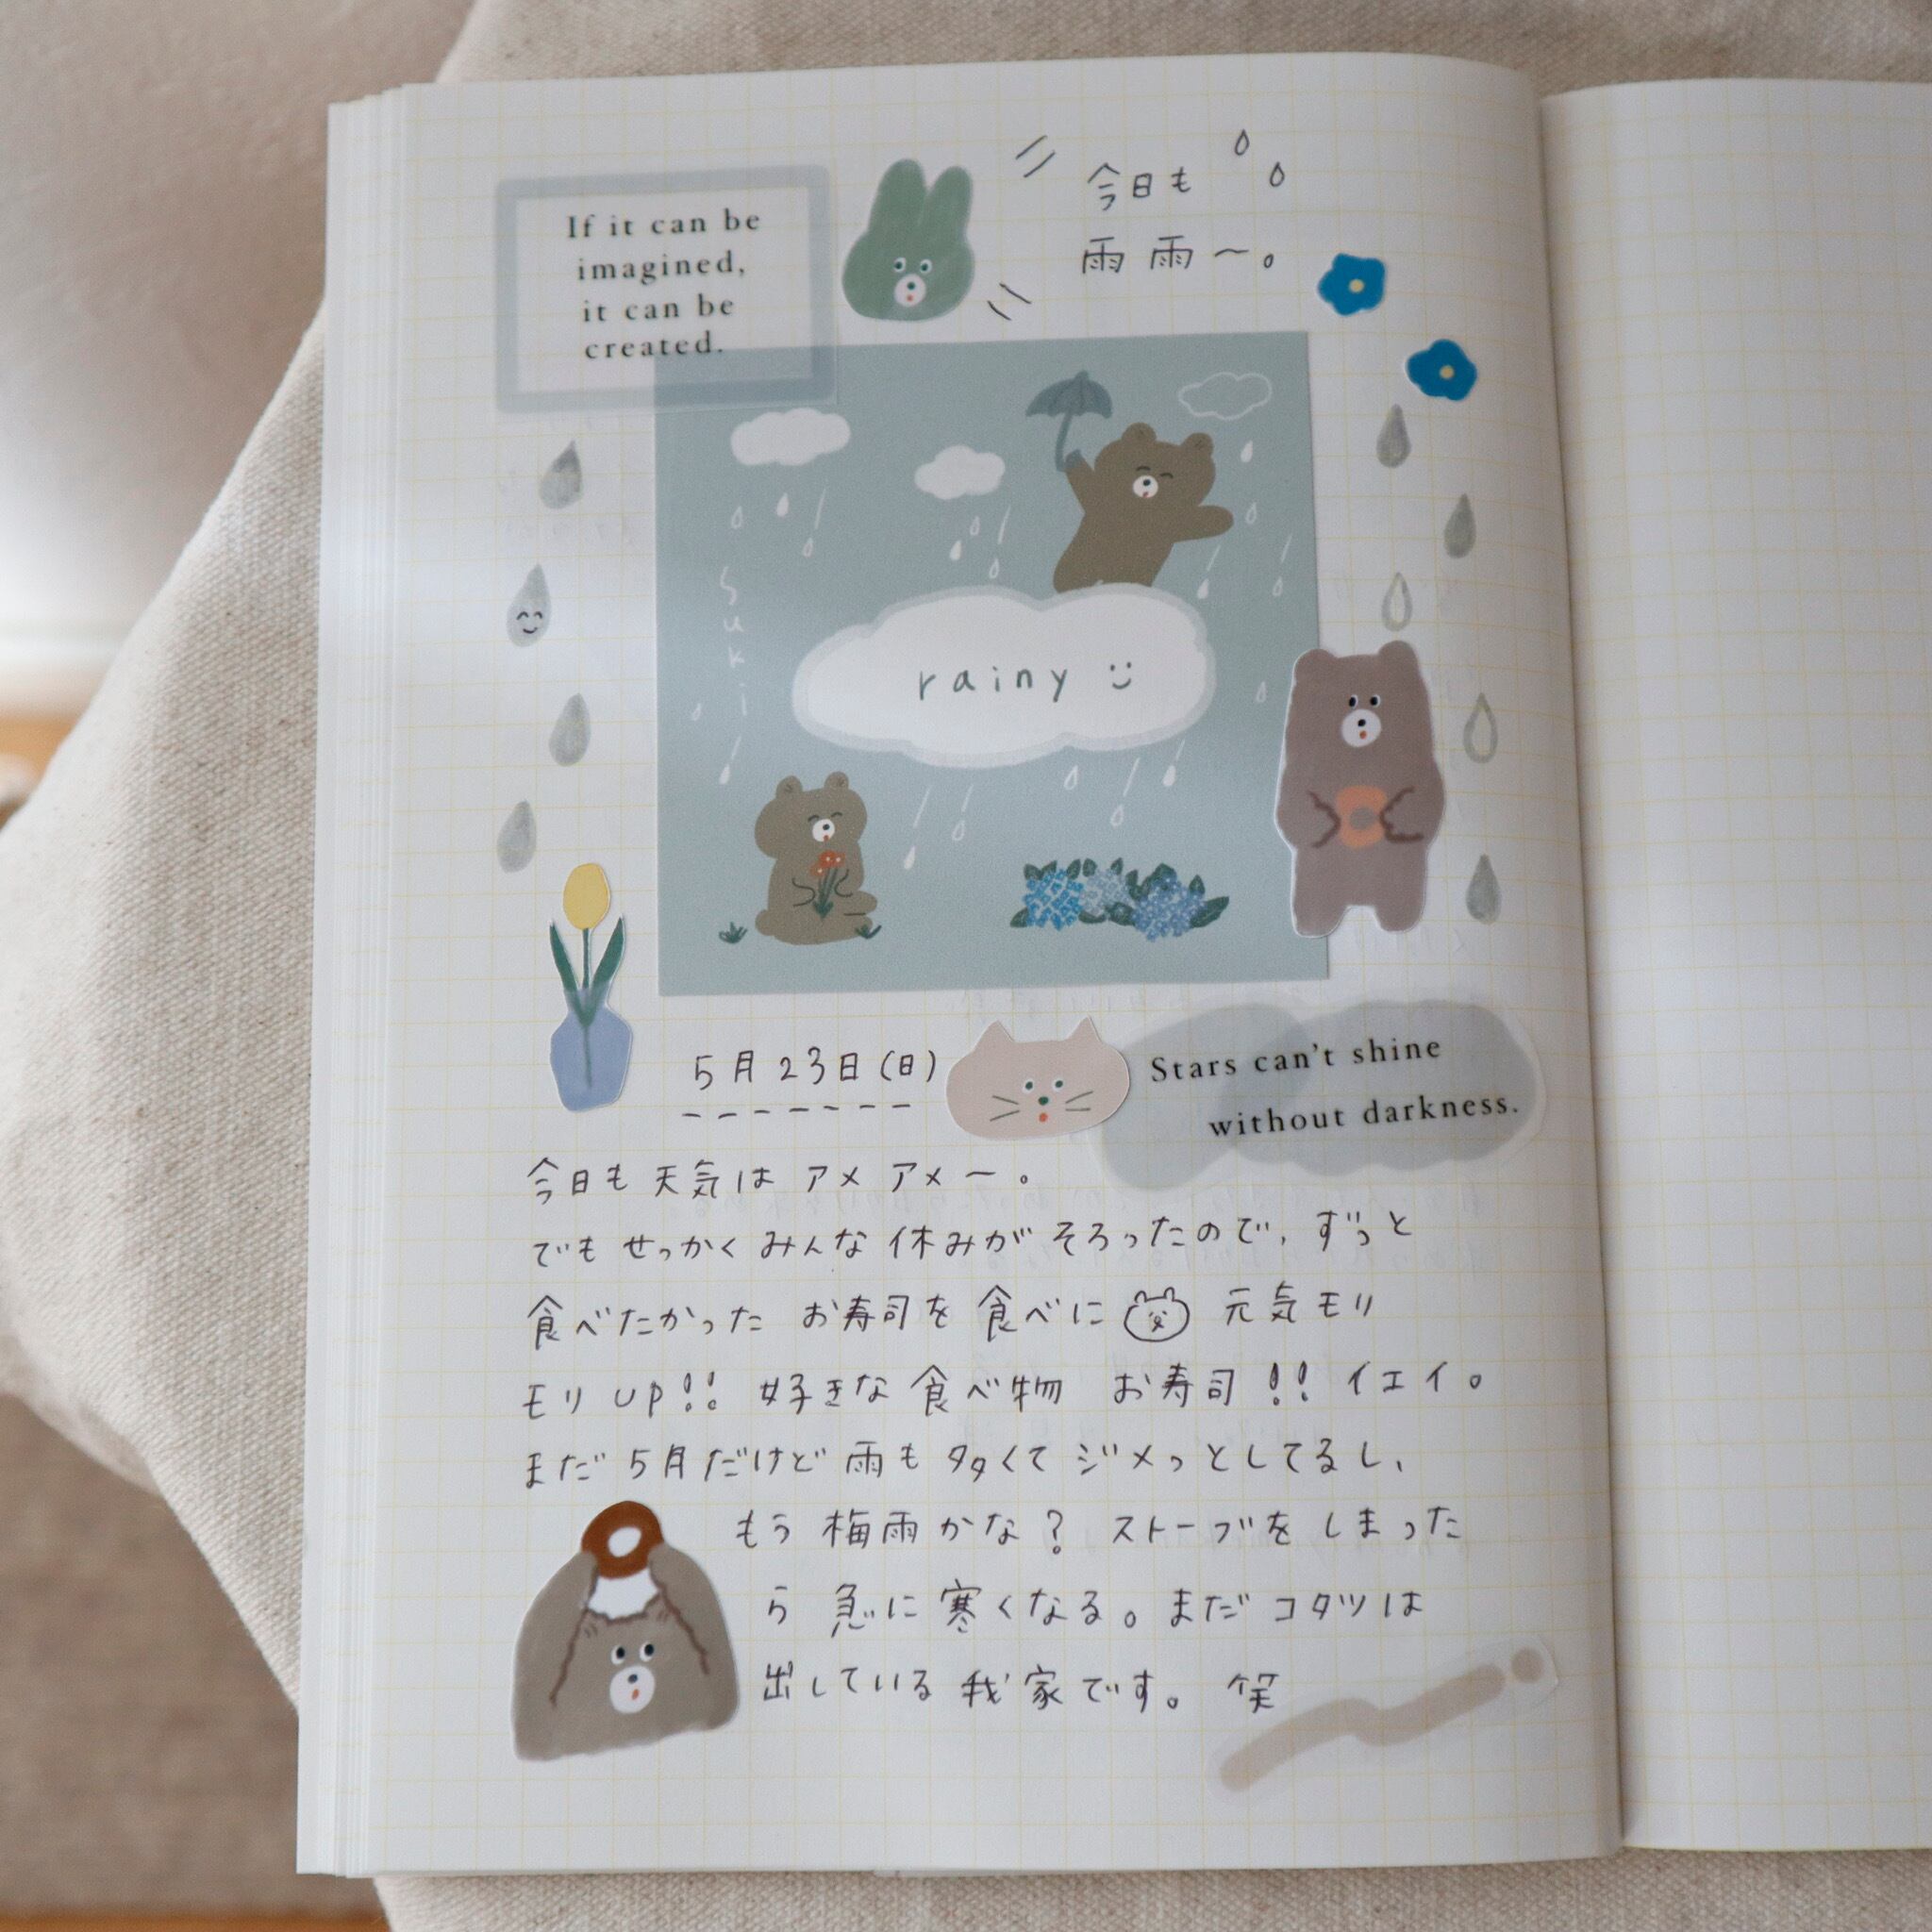 If it can be
imagined,
it can be
created.
今日も
雨雨〜。
suki
rainy
5月23日(日)
Stars can't shine
without darkness.
今日も天気はアメアメ〜。
でもせっかくみんな休みがそろったので、ずっと
食べたかったお寿司を食べに 元気モリ
モリup!! 好きな食べ物 お寿司!! イエイ。
まだ5月だけど雨も多くてジメっとしてるし、
もう梅雨かな? ストーブをしまった
ら急に寒くなる。まだコタツは
出している我家です。 笑